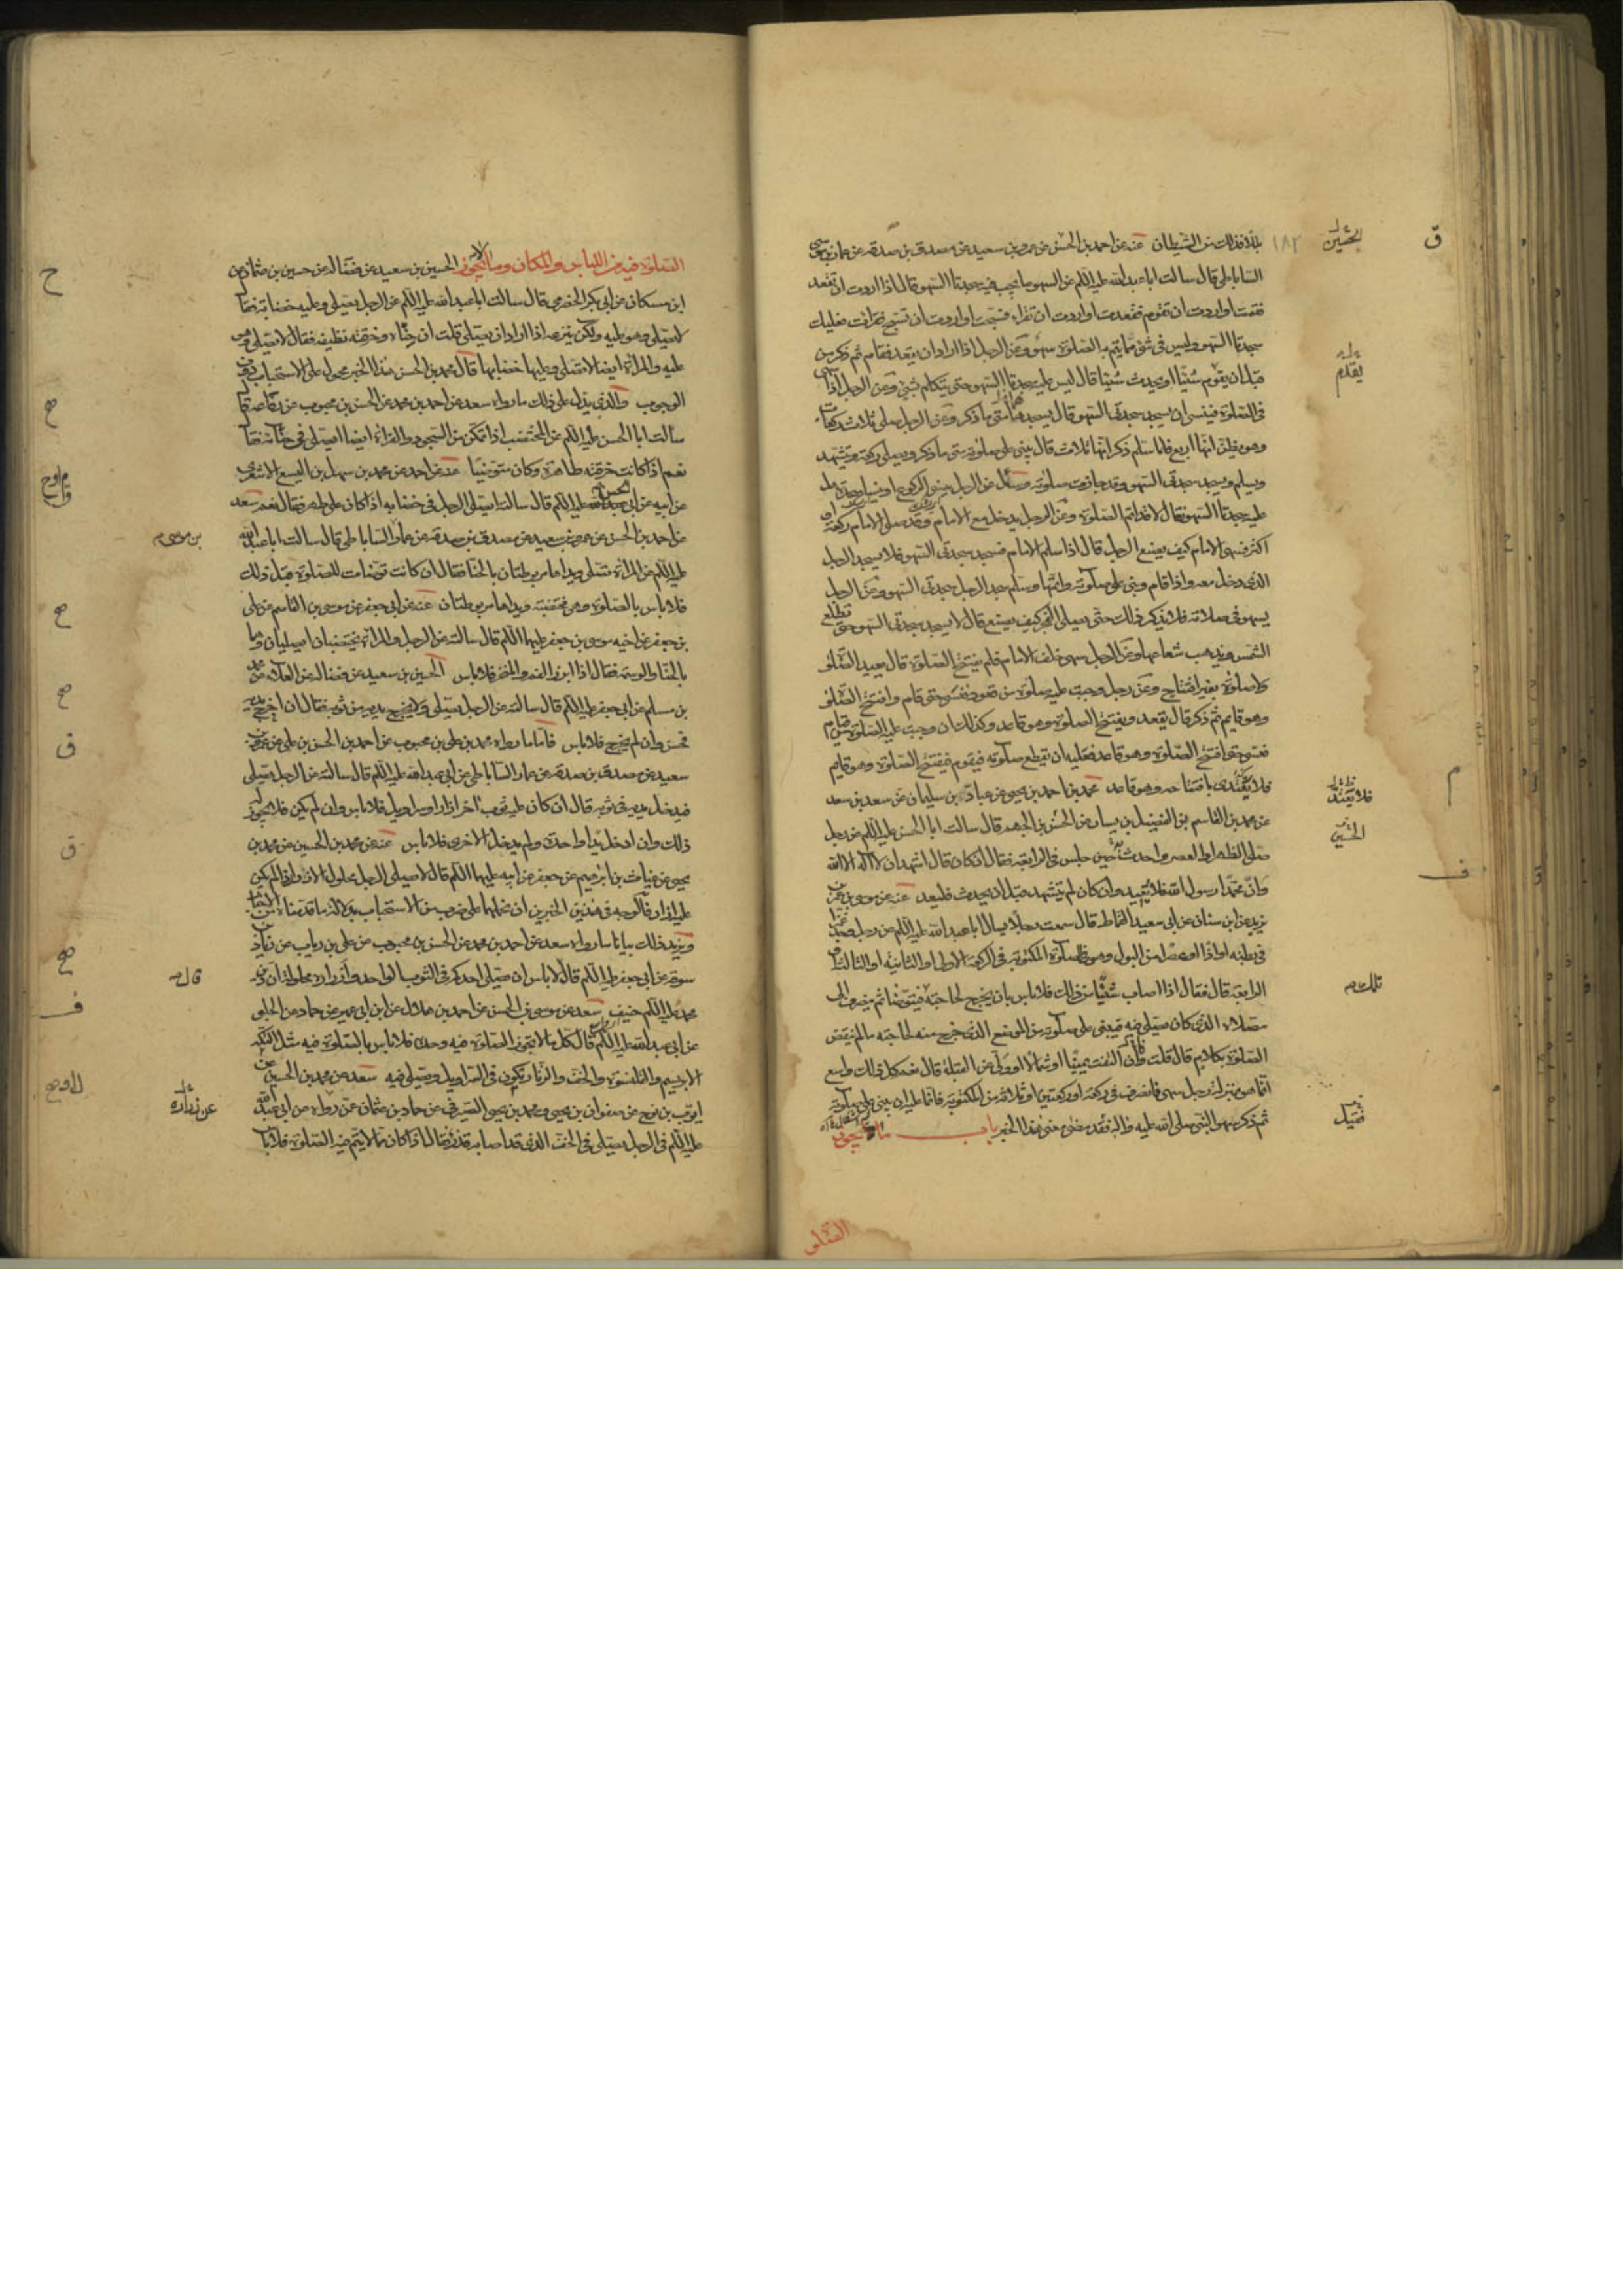 بلاء فذلك من الشيطان عنه عن احمد بن الحسن عن عمرو بن سعيد عن مصدق بن صدقه عن عمار بن موسى
الساباطي قال سالت ابا عبد الله عليه السلم عن السهو ما يجب فيه سجدتا السهو فقال اذا اردت ان تقعد
فقمت او اردت ان تقوم فقعدت او اردت ان تقراء فسبحت او اردت ان تسبح فقرات فعليك
سجدتا السهو وليس فى شئ مما يتم به الصلوة سهو وعن الرجل اذا اراد ان يقعد فقام ثم ذكر من
قبل ان يقوم شيئا او يحدث شيئا قال ليس عليه سجدتا السهو حتى يتكلم بشئ وعن الرجل اذا سهى
فى الصلوة فينسى ان يسجد سجدتى السهو قال يسجدهما متى ما ذكر وعن الرجل صلى ثلاث ركعات
وهو يظن انها اربع فلما سلم ذكر انها ثلاث قال يبنى على صلوته متى ما ذكر ويصلى ركعة ويتشهد
ويسلم ويسجد سجدتى السهو وقد جازت صلوته وسئل عن الرجل ينسى الركوع او ينسى سجدة هل
عليه سجدتا السهو فقال لا قد اتم الصلوة وعن الرجل يدخل مع الامام وقد صلى الامام ركعة او
اكثر فسهى الامام كيف يصنع الرجل قال اذا سلم الامام فسجد سجدتى السهو فلا يسجد الرجل
الذى دخل معه واذا قام وبنى على صلوته واتمها وسلم سجد الرجل سجدتى السهو وعن الرجل
يسهو فى صلاته فلا يذكر ذلك حتى يصلى الفجر كيف يصنع قال لا يسجد سجدتى السهو حتى تطلع
الشمس ويذهب شعاعها وعن الرجل سهى خلف الامام فلم يفتتح الصلوة قال يعيد الصلوة
ولا صلوة بغير افتتاح وعن رجل وجبت عليه صلوة من قعود فنسى حتى قام وافتتح الصلوة
وهو قايم ثم ذكر قال يقعد ويفتتح الصلوة وهو قاعد وكذلك ان وجبت عليه الصلوة من قيام
فنسى حتى افتتح الصلوة وهو قاعد فعليه ان يقطع صلوته فيقوم فيفتتح الصلوة وهو قايم
فلا يقتدى بافتتاحه وهو قاعد محمد بن احمد بن يحيى عن عباد بن سليمان عن سعد بن سعد
عن محمد بن القاسم بن الفضيل بن يسار عن الحسن بن الجهم قال سالت ابا الحسن عليه السلم عن رجل
صلى الظهر او العصر واحدث حين جلس فى الرابعة فقال ان كان قال اشهد ان لا اله الا الله
وان محمدا رسول الله فلا يعيد وان كان لم يتشهد قبل ان يحدث فليعد عنه عن موسى بن عمر بن
يزيد عن ابن سنان عن ابى سعيد القماط قال سمعت رجلا يسال ابا عبد الله عليه السلم عن رجل وجد غمزا
فى بطنه او اذا او عصرا من البول وهو فى صلوة المكتوبة فى الركعة الاولى او الثانية او الثالثة او
الرابعة قال فقال اذا اصاب شيئا من ذلك فلا باس بان يخرج لحاجته فيتوضا ثم ينصرف الى
مصلاه الذى كان يصلى فيه فيبنى على صلوته من الموضع الذى خرج منه لحاجته ما لم ينقض
الصلوة بكلام قال قلت وان التفت يمينا او شمالا او ولى عن القبلة قال نعم كل ذلك واسع
انما هو بمنزلة رجل سهى فانصرف فى ركعة او ركعتين او ثلاثة من المكتوبة فانما عليه ان يبنى على صلوته
ثم ذكر سهو النبى صلى الله عليه واله فقد مضى معنى هذا الخبر باب ما يجوز
الصلوة
الحسين
يقدم
فلا يعتد
الحسين
تلك
فضيل
الصلوة فيه من اللباس والمكان وما لا يجوز الحسين بن سعيد عن فضاله عن حسين بن عثمان عن
ابن مسكان عن ابى بكر الحضرمى قال سالت ابا عبد الله عليه السلم عن الرجل يصلى وعليه خضابه فقال
لا يصلى وهو عليه ولكن ينزعه اذا اراد ان يصلى قلت ان حناه وخرقته نظيفه فقال لا يصلى وهو
عليه والمراة ايضا لا تصلى وعليها خضابها قال محمد بن الحسن هذا الخبر محمول على الاستحباب دون
الوجوب والذى يدل على ذلك ما رواه سعد عن احمد بن محمد عن الحسن بن محبوب عن رفاعة قال
سألت ابا الحسن عليه السلم عن المختضب اذا تمكن من السجود والقراءة ايضا ايصلى فى حنائه فقال
نعم اذا كانت خرقته طاهرة وكان متوضيا عنه عن احمد عن محمد بن سهل بن اليسع الاشعرى
عن ابيه عن ابى الحسن عليه السلم قال سالته ايصلى الرجل فى خضابه اذا كان على طهر فقال نعم سعد
عن احمد بن الحسن عن عمرو بن سعيد عن مصدق بن صدقه عن عمار الساباطى قال سالت ابا عبد الله
عليه السلم عن المراة تصلى ويداها مربوطتان بالحنا فقال ان كانت توضات للصلوة قبل ذلك
فلا باس بالصلوة وهى مختضبة ويداها مربوطتان عنه عن ابى جعفر عن موسى بن القاسم عن على
بن جعفر عن اخيه موسى بن جعفر عليهما السلم قال سالته عن الرجل والمراة يختضبان ايصليان وهما
بالحنا والوسمة فقال اذا ابرزا الفم والمنخر فلا باس الحسين بن سعيد عن فضاله عن العلا عن محمد
بن مسلم عن ابى جعفر عليه السلم قال سالته عن الرجل يصلى ولا يخرج يديه من ثوبه فقال ان اخرج يديه
فحسن وان لم يخرج فلا باس فاما ما رواه محمد بن على بن محبوب عن احمد بن الحسن بن على عن عمرو بن
سعيد عن مصدق بن صدقه عن عمار الساباطى عن ابى عبد الله عليه السلم قال سالته عن الرجل يصلى
فيدخل يديه فى ثوبه قال ان كان عليه ثوب اخر ازار او سراويل فلا باس وان لم يكن فلا يجوز له
ذلك وان ادخل يدا واحدة ولم يدخل الاخرى فلا باس عنه عن محمد بن الحسين عن محمد بن
يحيى عن غياث بن ابراهيم عن جعفر عن ابيه عليهما السلم قال لا يصلى الرجل محلول الازرار اذا لم يكن
عليه ازار فالوجه فى هذين الخبرين ان نحملهما على ضرب من الاستحباب بدلالة ما قدمناه
ويزيد ذلك بيانا ما رواه سعد عن احمد بن محمد عن الحسن بن محبوب عن على بن رياب عن زياد بن
سوقه عن ابى جعفر عليه السلم قال لا باس ان يصلى احدكم فى الثوب الواحد وازراره محلولة ان دين
محمد عليه السلم حنيف سعد عن موسى بن الحسن عن احمد بن هلال عن ابن ابى عمير عن حماد عن الحلبى
عن ابى عبد الله عليه السلم قال كل ما لا تجوز الصلوة فيه وحده فلا باس بالصلوة فيه مثل التكه
الابريسم والقلنسوة والخف والزنار يكون فى السراويل ويصلى فيه سعد عن محمد بن الحسين عن
ايوب بن نوح عن صفوان بن يحيى ومحمد بن يحيى الصيرفى عن حماد بن عثمان عمن رواه عن ابى عبد الله
عليه السلم فى الرجل يصلى فى الخف الذى قد اصابه قذر فقال اذا كان مما لا يتم فيه الصلوة فلا باس
بن موسى
قال
عن زراره